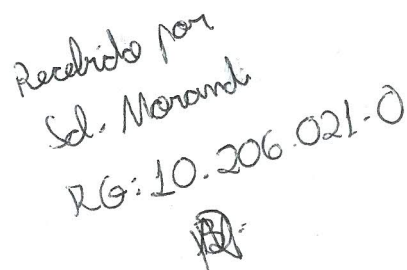 Recebido por
Sd. Morandi
RG: 10.206.021-0